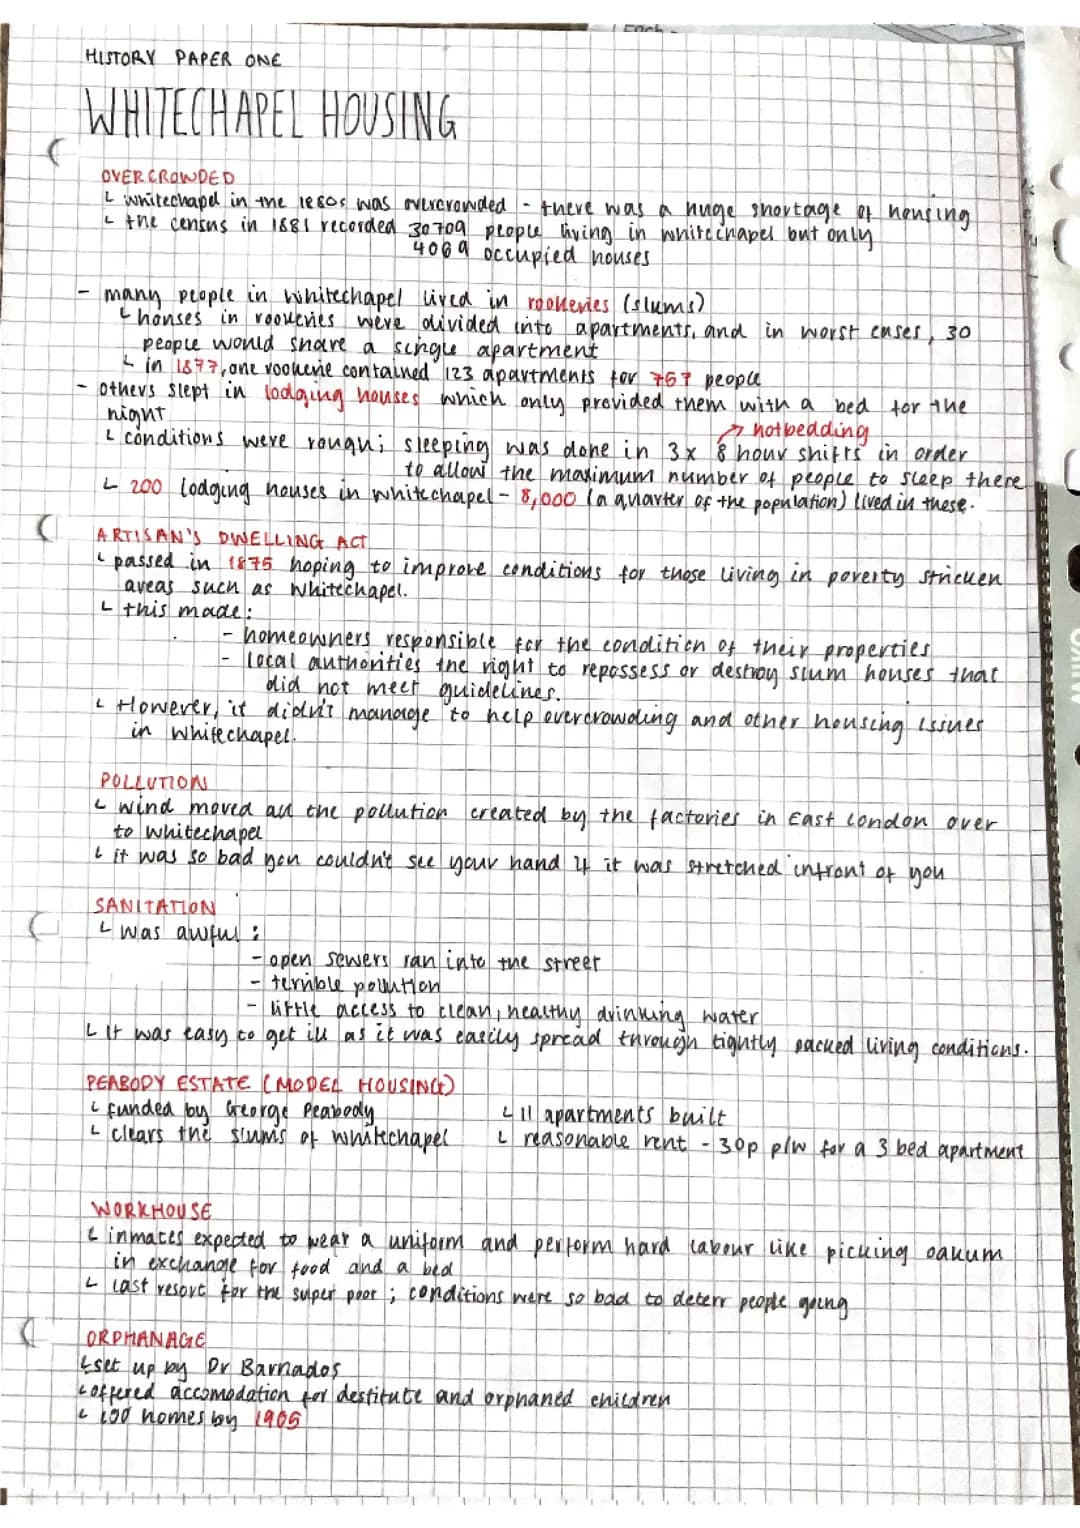 HISTORY PAPER ONE
WHITECHAPEL HOUSING
OVERCROWDED
whitechapel in the 1880s was overcrowded - there was a huge shortage of housing
the census in 1881 recorded 30709 people living in whitechapel but only
4069 occupied houses
- many people in whitechapel lived in rookeries (slums)
houses in rookeries were divided into apartments, and in worst cases, 30
people would share a single apartment
in 1877, one rookerie contained 123 apartments for 757 people
- others slept in lodging houses which only provided them with a bed for the
night
hotbedding
conditions were rough; sleeping was done in 3x 8 hour shifts in order
to allow the maximum number of people to sleep there
200 lodging houses in whitechapel - 8,000 (a quarter of the population) lived in these.
ARTISAN'S DWELLING ACT
passed in 1875 hoping to improve conditions for those living in poverty stricken
areas such as whitechapel.
this made:
- homeowners responsible for the condition of their properties
- local authorities the right to repossess or destroy slum houses that
did not meet guidelines.
However, it didn't manage to help overcrowding and other housing issues
in whitechapel.
POLLUTION
wind moved all the pollution created by the factories in East London over
to whitechapel
it was so bad you couldn't see your hand if it was stretched infront of you
SANITATION
was awful:
- open sewers ran into the street
- terrible pollution
- little access to clean, healthy drinking water
It was easy to get ill as it was easily spread through tightly packed living conditions.
PEABODY ESTATE (MODEL HOUSING)
funded by George Peabody
clears the slums of whitechapel
11 apartments built
reasonable rent - 30p p/w for a 3 bed apartment
WORKHOUSE
inmates expected to wear a uniform and perform hard labour like picking oakum
in exchange for food and a bed
last resort for the super poor; conditions were so bad to deterr people going
ORPHANAGE
set up by Dr Barnados
offered accomodation for destitute and orphaned children
100 homes by 1905